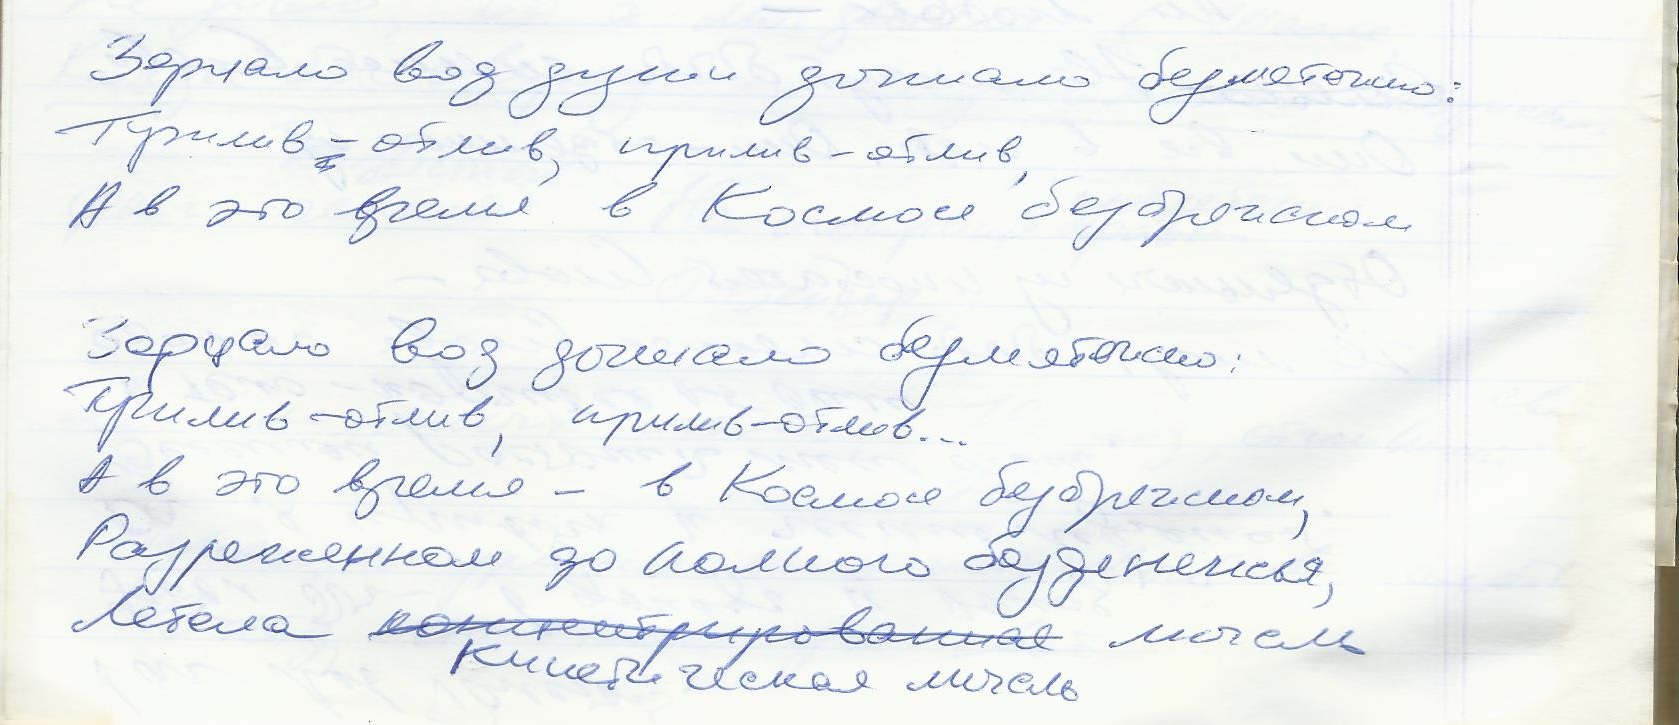 Зерцало вод души дышало безмятежно:
Прилив-отлив, прилив-отлив,
А в это время в Космосе безбрежном
Зерцало вод дышало безмятежно:
Прилив-отлив, прилив-отлив...
А в это время – в Космосе безбрежном,
Разреженном до полного безденежья,
Летела концентрированная мысль
Кинетическая мысль